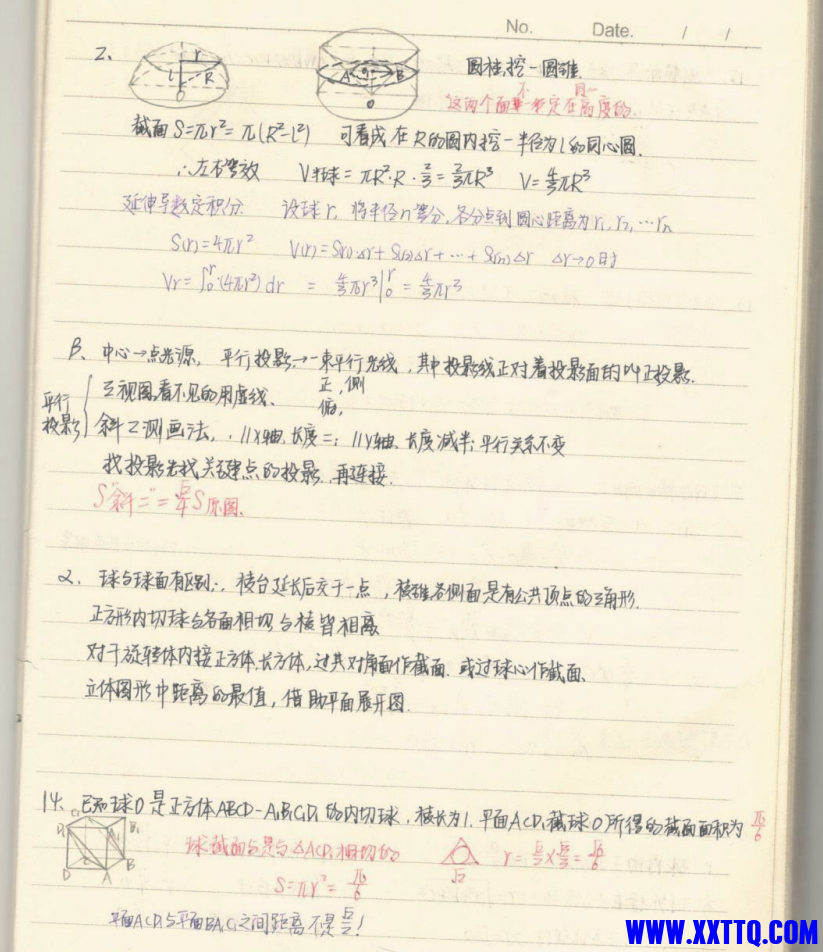 No. Date. / /
2、 圆柱,挖一圆锥.
这两个面不一定在同一高度的.
截面 S=πr²=π(R²-l²) 可看成在R的圆内挖一半径为l的同心圆.
∴左右等效 V半球=πR²·R·2/3=2/3πR³ V=4/3πR³
延伸导数定积分. 设球r, 将半径n等分, 各分点到圆心距离为r₁, r₂, …rₙ
S(r)=4πr² V(r)=S(r₁)Δr+S(r₂)Δr+…+S(rₙ)Δr Δr→0时
Vr=∫₀ʳ(4πr²)dr = 4/3πr³|₀ʳ = 4/3πr³
β、中心→点光源, 平行投影→一束平行光线, 其中投影线正对着投影面的叫正投影.
平行投影
三视图,看不见的用虚线、 正,侧 俯,
斜二测画法, ∥x轴,长度=; ∥y轴、长度减半;平行关系不变
找投影先找关键点的投影,再连接.
S"斜二"=√2/4 S原图.
2. 球与球面有区别;棱台延长后交于一点,棱锥各侧面是有公共顶点的三角形.
正方形内切球与各面相切,与棱皆相离
对于旋转体内接正方体、长方体,过其对角面作截面.或过球心作截面、
立体图形中距离的最值,借助平面展开图.
14、已知球O是正方体ABCD-A₁B₁C₁D₁的内切球,棱长为1.平面ACD₁截球O所得的截面面积为π/6
球截面与是与△ACD₁相切的 √2 r=√2/2×√3/3=√6/6
S=πr²=π/6
平面ACD₁与平面BA₁C₁之间距离不是√2/2!
WWW.XXTTQ.COM